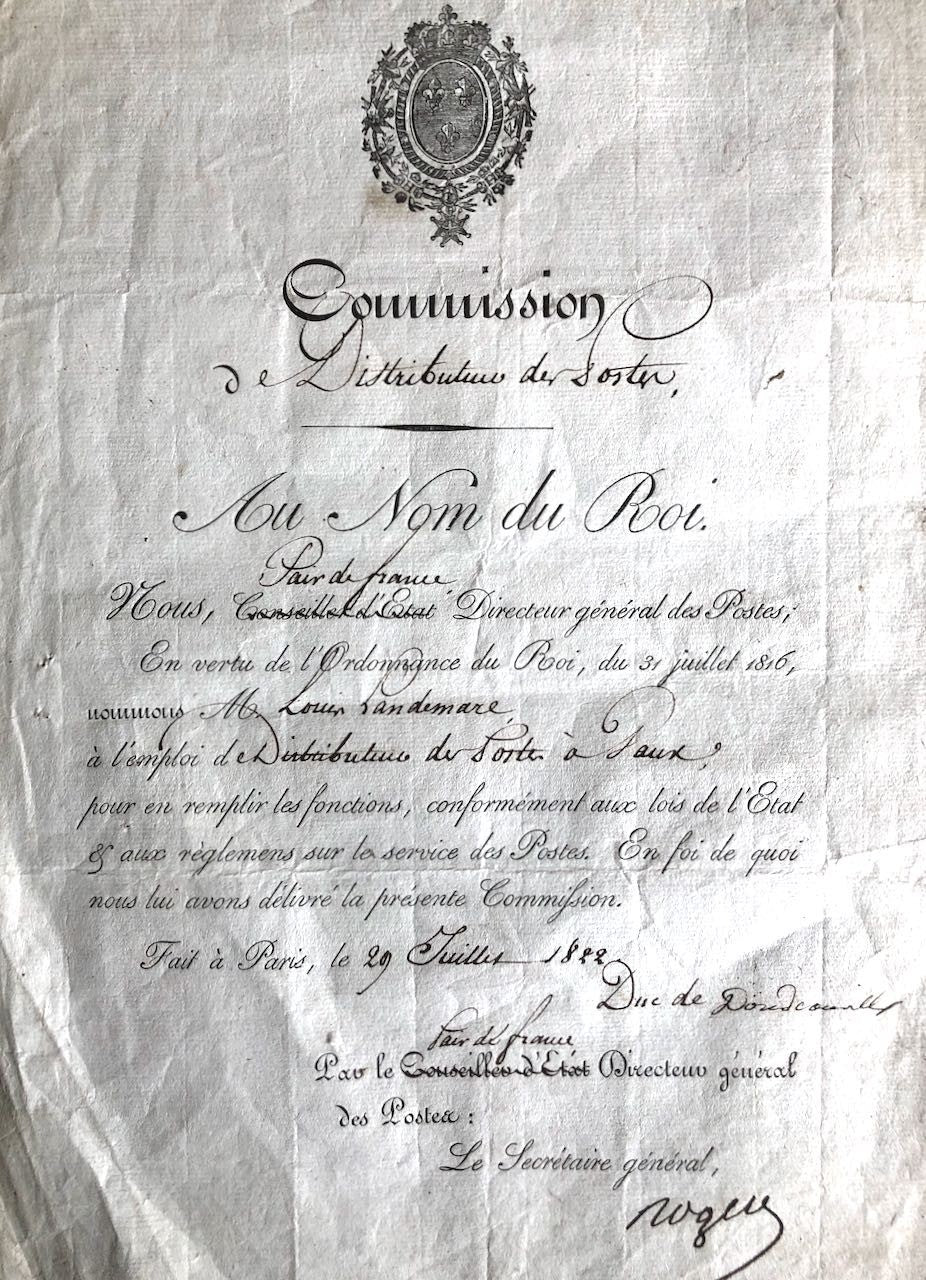 Commission
de Distributeur des Postes,
Au Nom du Roi.
Pair de france
Nous, Conseiller d'Etat Directeur général des Postes;
En vertu de l'Ordonnance du Roi, du 31 juillet 1816,
nommons M. Louis Landemare,
à l'emploi de Distributeur des Postes à
pour en remplir les fonctions, conformément aux lois de l'Etat
& aux règlemens sur le service des Postes. En foi de quoi
nous lui avons délivré la présente Commission.
Fait à Paris, le 29 Juillet 1822
Duc de Doudeauville
Pair de france
Par le Conseiller d'Etat Directeur général
des Postes:
Le Secrétaire général,